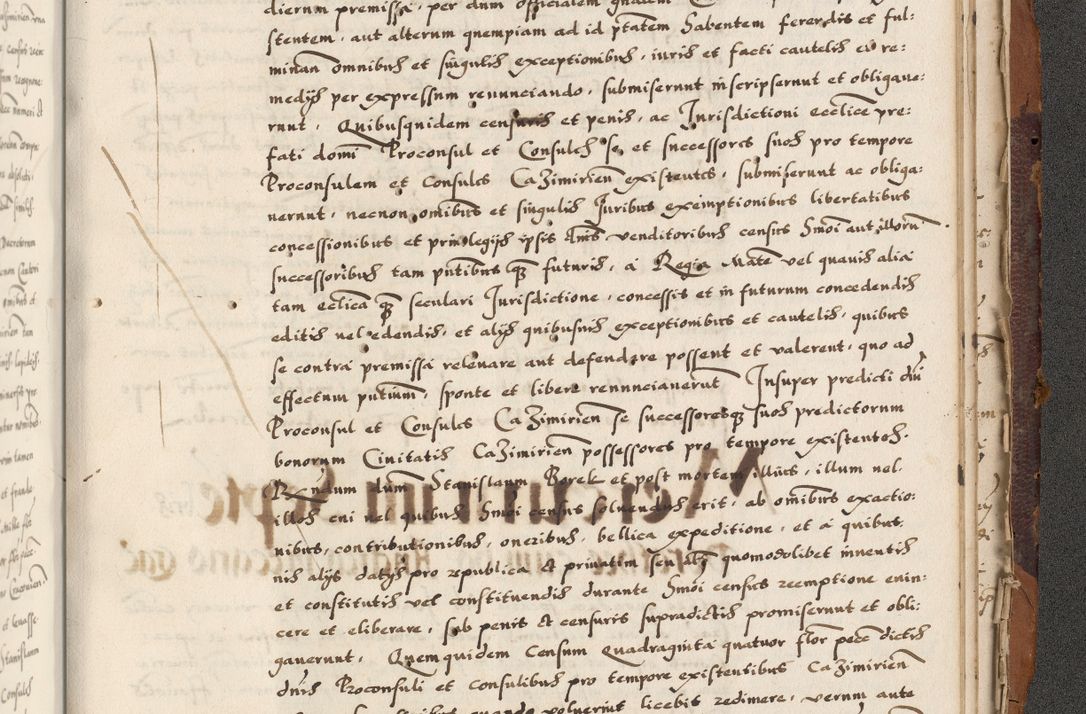 dierum premissa, per dnm officialem
stentem, aut alterum quempiam ad id ptatem habentem ferendis et ful:
minan omnibus et singulis exceptionibus, iuris et facti cautelis et re:
medys per expressum renunciando, submiserunt inscripserunt et obligaue:
runt, Quibusquidem censuris et penis, ac Jurisdictioni ecclice pre:
fati domi Proconsul et Consules se et successores suos pro tempore
Proconsulem et Consules Cazimirien existentes, submiserunt ac obliga:
uerunt, necnon omibus et singulis Juribus exemptionibus libertatibus
concessionibus et priuilegys ipsis dnis venditoribus census Smoi aut illorum
successoribus tam pntibus qz futuris, a Regia Mate vel quauis alia
tam eclica qz seculari Jurisdictione, concessis et in futurum concedendis
editis uel edendis, et alys quibusuis exceptionibus et cautelis, quibus
se contra premissa releuare aut defendere possent et valerent, quo ad
effectum pntium, sponte et libere renunciauerunt Insuper predicti dni
Proconsul et Consules Cazimirien se successoresqz suos predictorum
bonorum Ciuitatis Cazimirien possessores pro tempore existentes,
Rndum dnm Stanislaum Borek et post mortem illius, illum vel
illos cui uel quibus Smoi census soluendus erit, ab omibus exactio:
nibus, contributionibus, oneribus, bellica expeditione, et a quibus:
uis alys datys pro republica et priuatim seu als quomodolibet inuentis
et constitutis vel constituendis durante Smoi census reemptione euin:
cere et eliberare, sub penis et censuris supradictis promiserunt et obli:
gauerunt, Quemquidem Censum Quadraginta quatuor flor pecc dictis
dnis Proconsuli et Consulibus pro tempore existentibus Cazimirien
quando voluerint licebit redimere, verum ante